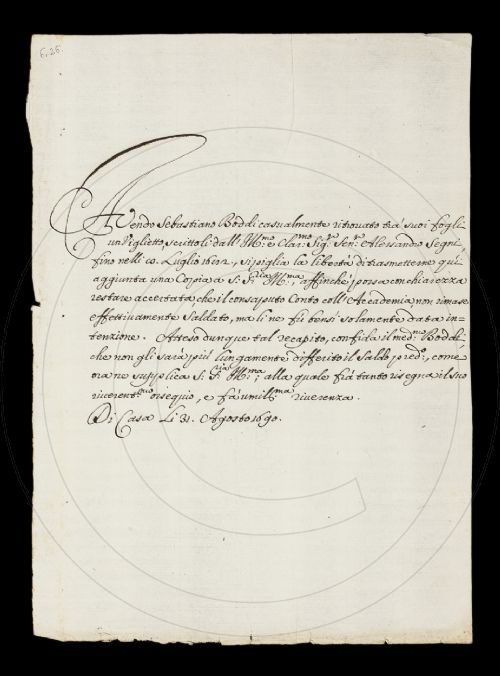 6, 26.
Avendo Sebastiano Boddi casualmente ritrovato trà suoi fogli
un Viglietto, scrittoli dall' Ill.mo e Clar.mo Sig.r Sen.r Alessandro Segni,
fino nelli Luglio si piglia la libertà di trasmetterne qui
aggiunta una Copia a S. S.ria Ill.ma, affinche possa con chiarezza
restare accertata, che il consaputo Conto coll' Accademia, non rimase
effettivamente Saldato, ma li ne fù bensi solamente data in-
tenzione. Atteso dunque tal recapito, confida il med.mo Boddi,
che non gli sarà più lungamente differito il saldo pred.o, come
ora ne supplica S. S.ria Ill.ma; alla quale frà tanto rassegna il suo
riverent.mo ossequio, e fà umil.ma riverenza.
Di Casa Li 31. Agosto 1690.